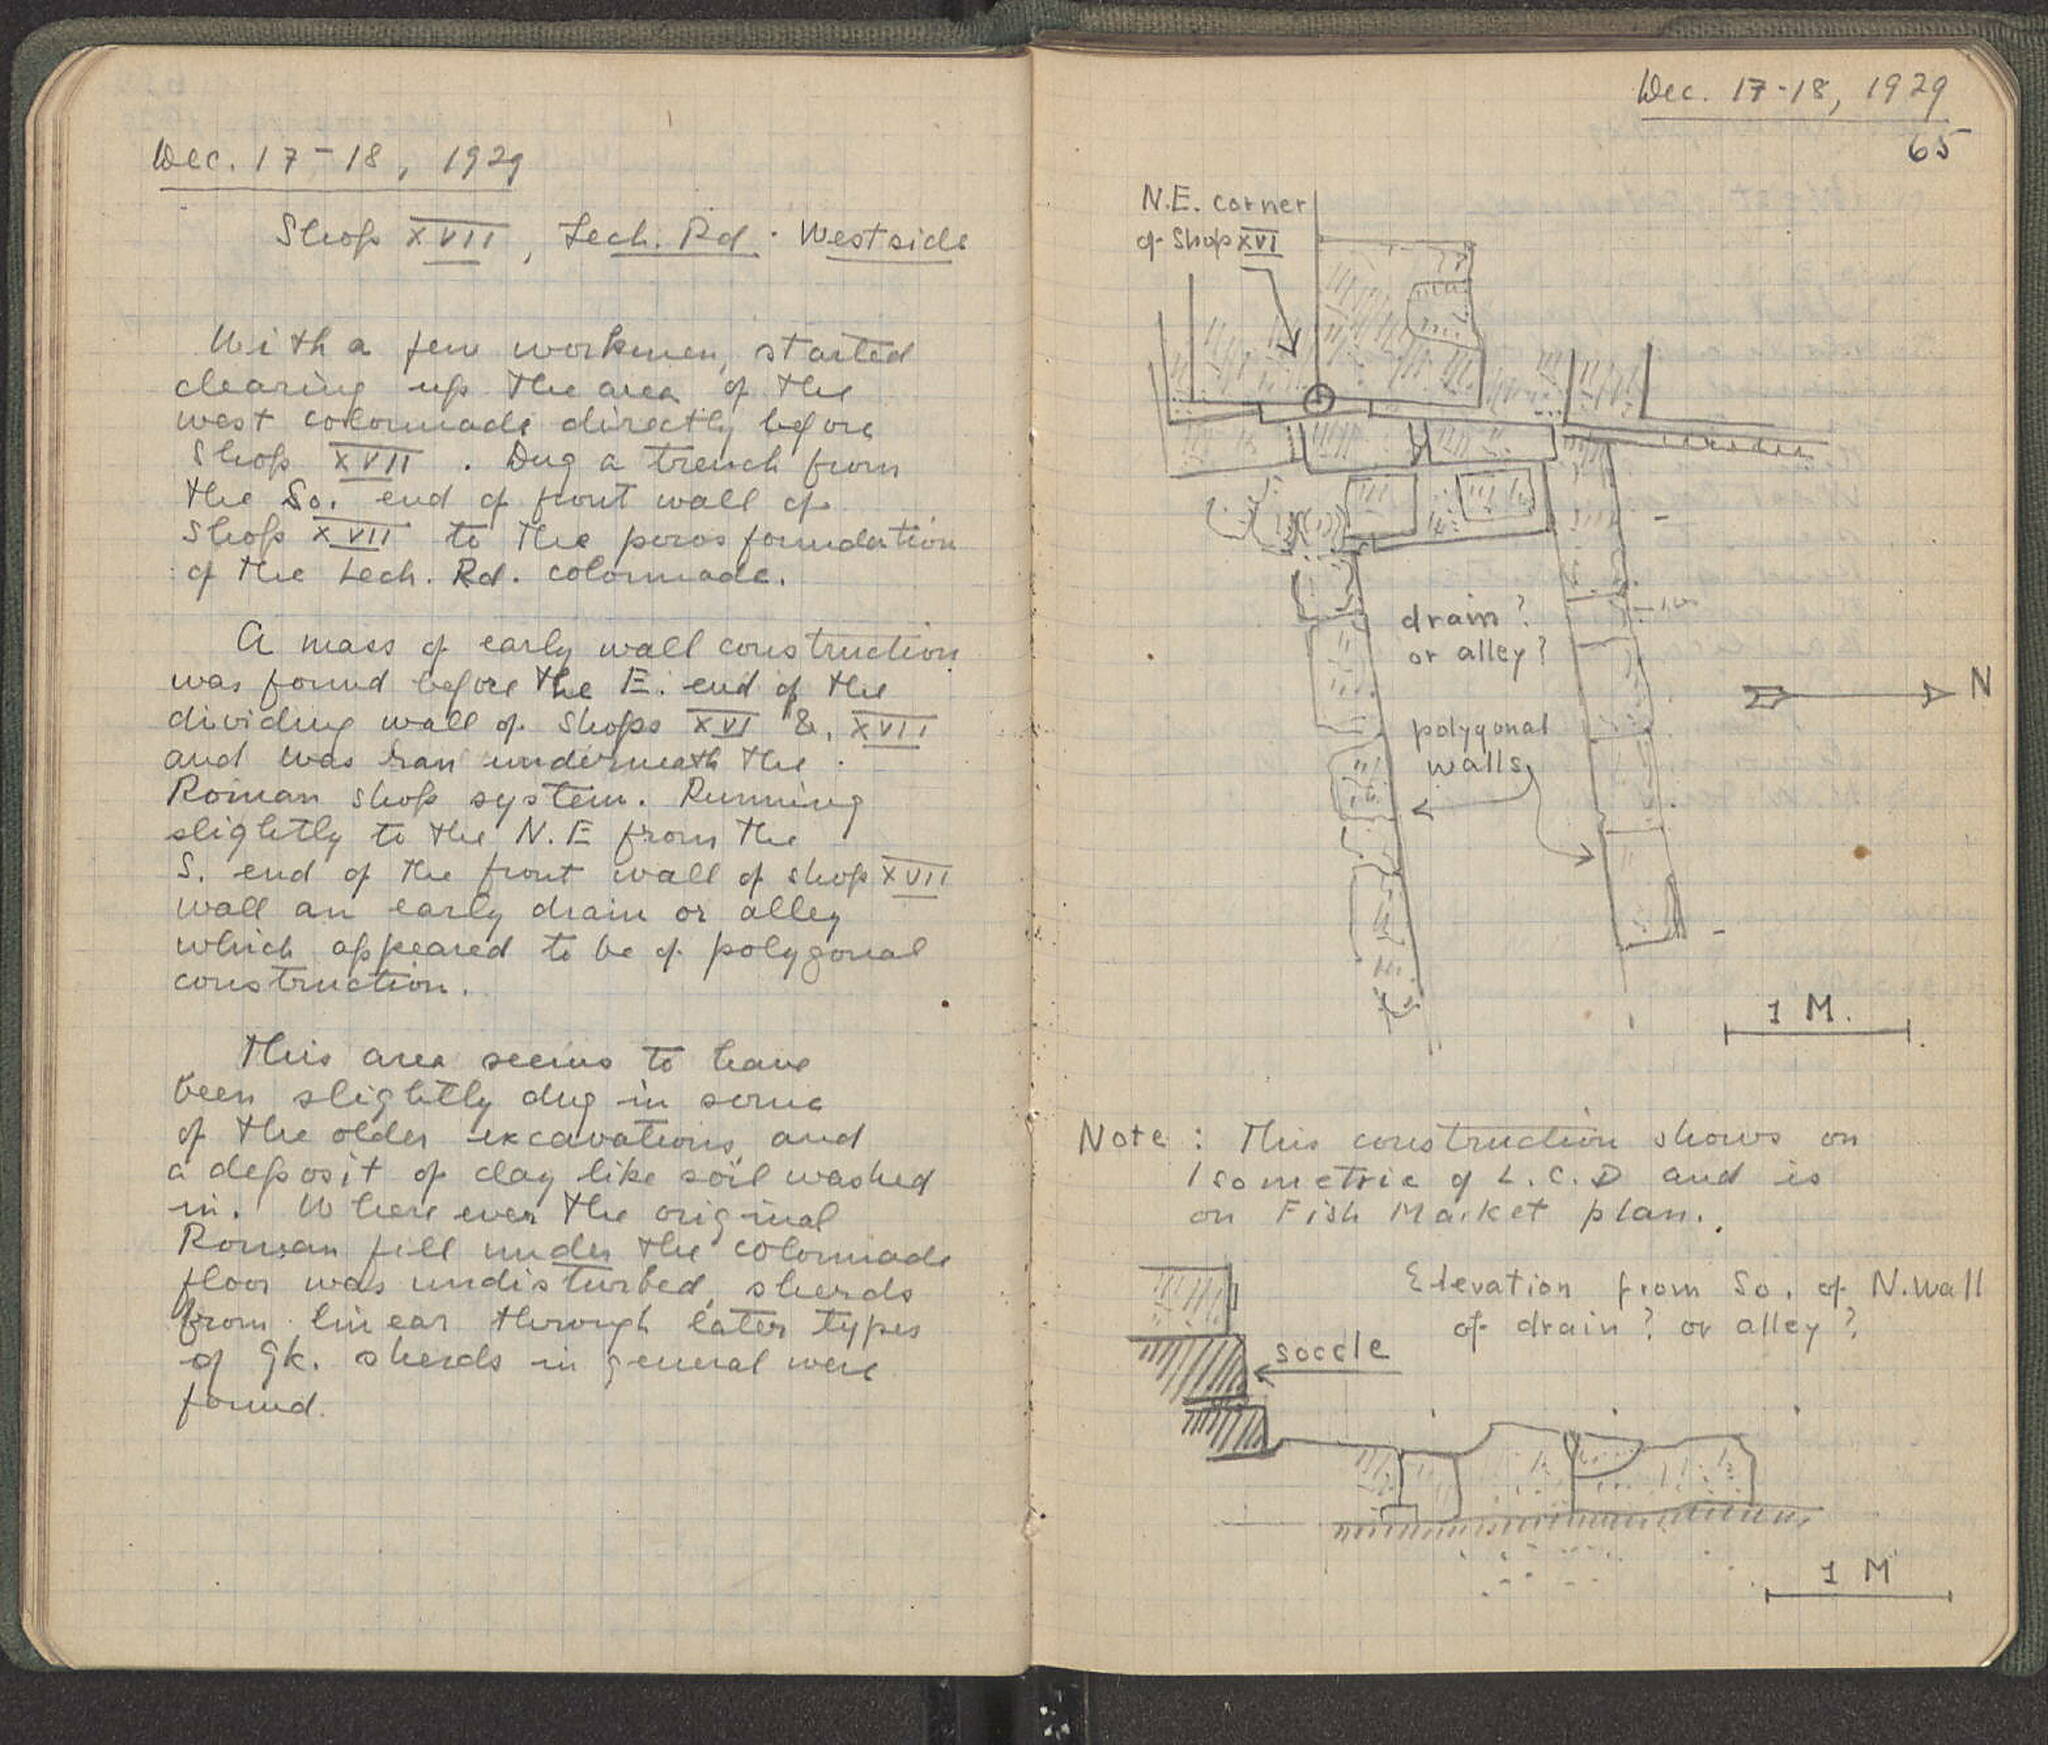 Dec. 17-18, 1929
Shop XVII, Lech. Rd. West side
With a few workmen, started
clearing up the area of the
west colonnade directly before
Shop XVII. Dug a trench from
the So. end of front wall of
Shop XVII to the poros foundation
of the Lech. Rd. colonnade.
A mass of early wall construction
was found before the E. end of the
dividing wall of Shops XVI &, XVII
and was ran underneath the
Roman shop system. Running
slightly to the N.E from the
S. end of the front wall of shop XVII
wall an early drain or alley
which appeared to be of polygonal
construction.
This area seems to have
been slightly dug in some
of the older excavations, and
a deposit of clay like soil washed
in. Where ever the original
Roman fill under the colonnade
floor was undisturbed, sherds
from linear through later types
of Gk. sherds in general were
found.
Dec. 17-18, 1929
65
N.E. corner
of Shop XVI
drain?
or alley?
N
polygonal
walls
1 M.
Note: This construction shows on
Isometric of L.C.D and is
on Fish Market plan.
Elevation from So. of N. wall
of drain? or alley?
soccle
1 M